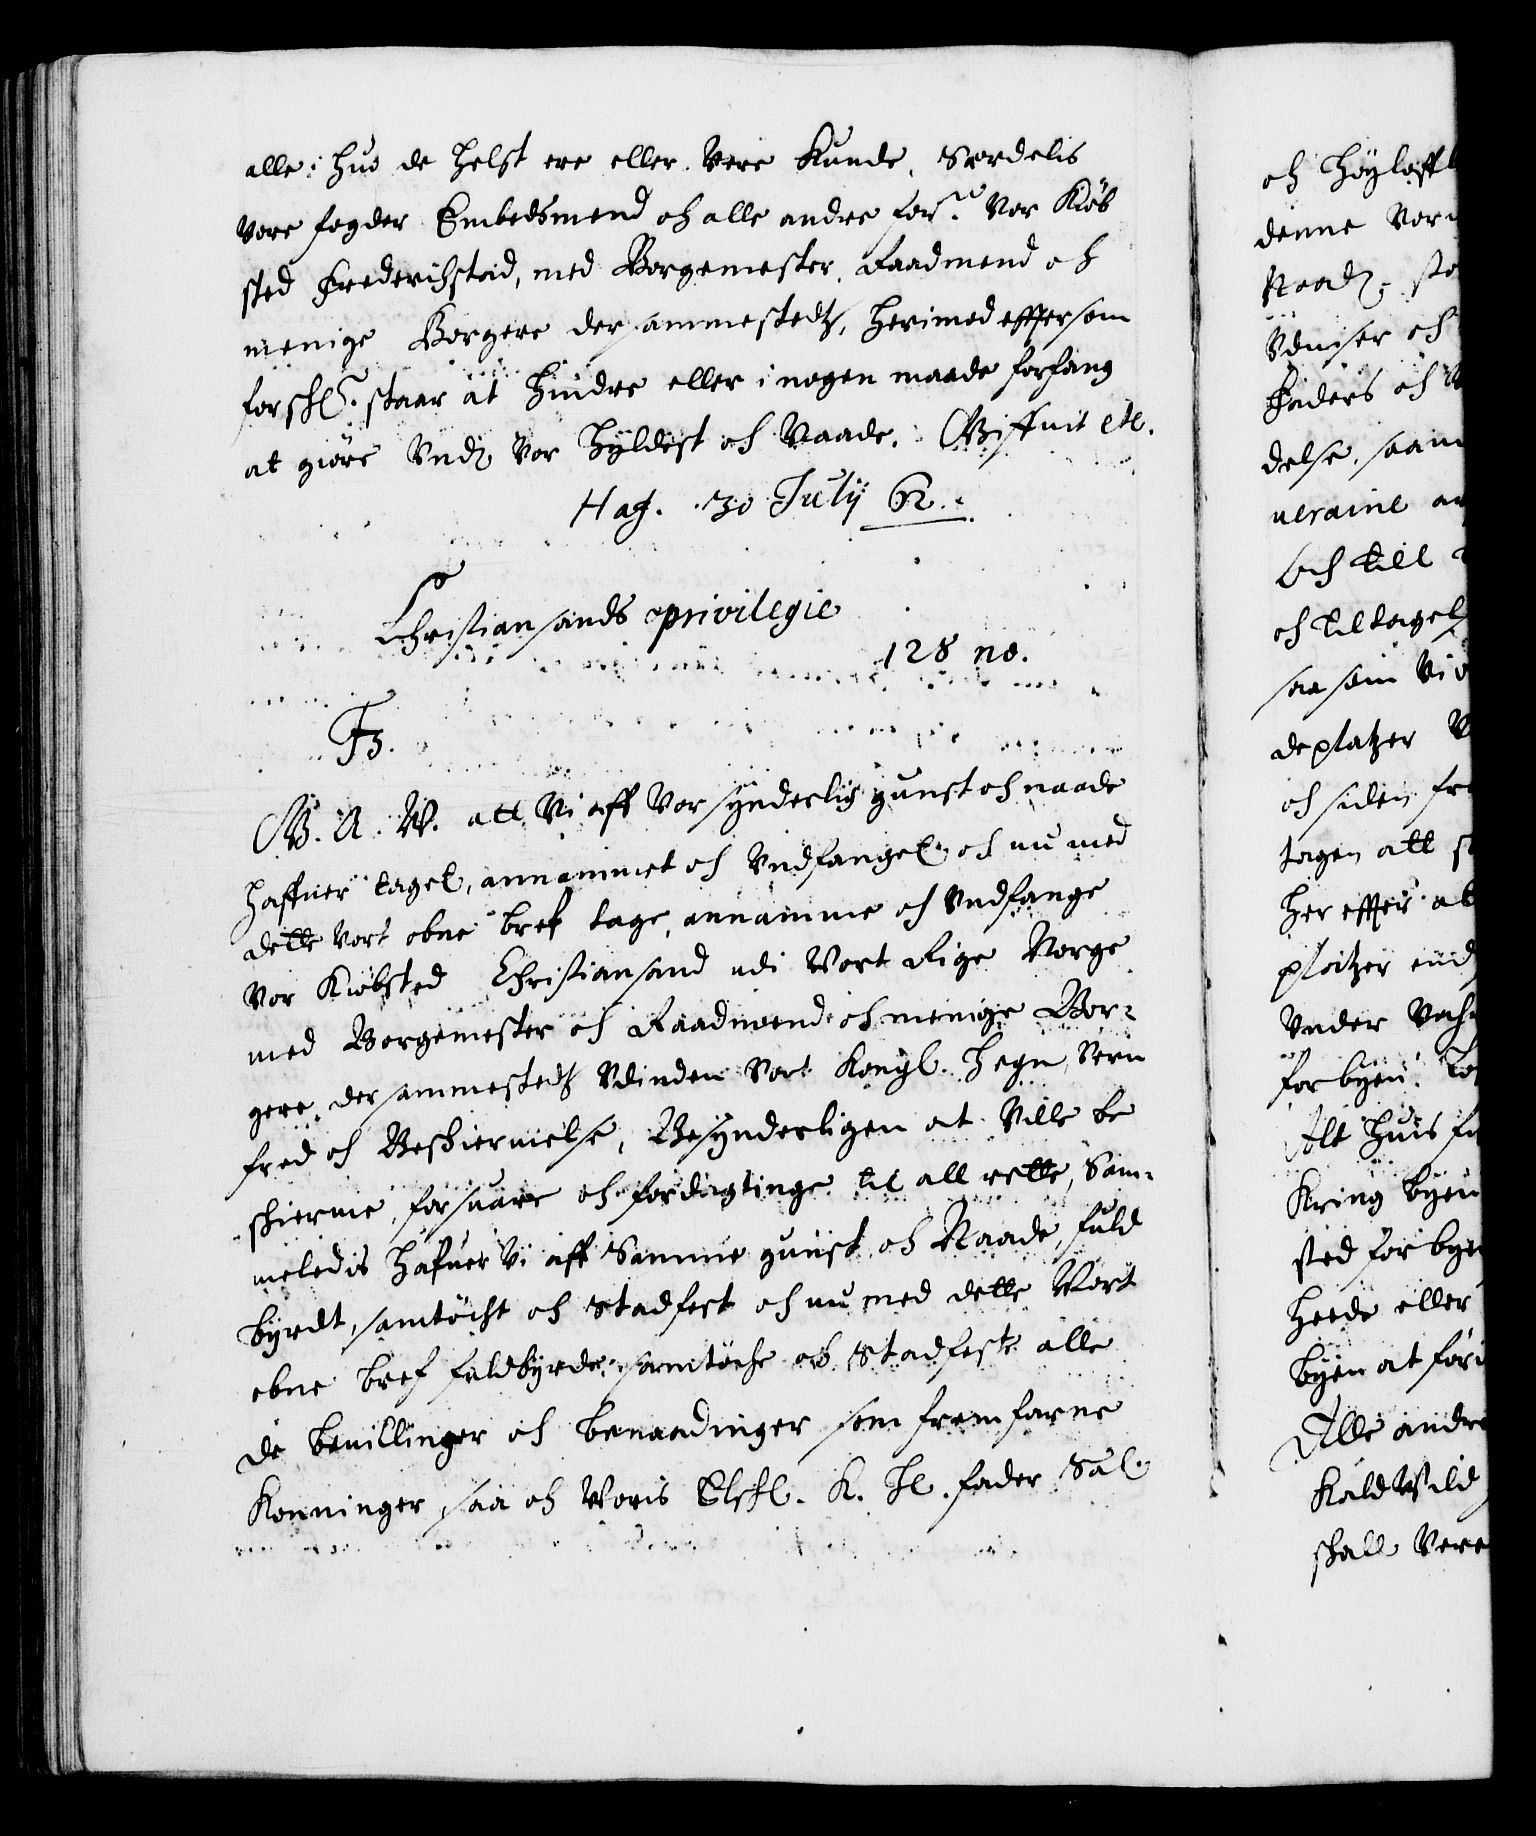 alle: huo de helst ere eller vere Kunde, Særdelis
vore fogder Embedsmend och alle andre for.ne vor Kiøb
sted Frederichstad, med Borgemester, Raadmend och
menige Borgere der sammestedtz, herimod effter som
forsch.t staar at hindre eller i nogen maade forfang
at giøre Vnd. vor hyldest och Naade. Giffuit etc.
Haf. 30 July 62.
Christiansands privilegie
128 no.
F3.
G. A. W. att Vi aff Vor synderlig gunst och naade
haffuer taget, annammet och Vndfanget och nu med
dette vort obne bref tage, annamme och Vndfange
vor Kiøbsted Christiansand udi Vort Rige Norge
med Borgemester och Raadmend och menige Bor-
gere, der sammestedtz Vdinden Vort Kongl. hegn, Vern
fred och Beschiermelse, Besynderligen at Ville be
schierme, forsuare och fordagtinge til all rette, Sam-
meledis hafuer Vi aff Samme gunst och Naade, fuld
byrdt, samtöcht och Stadfest och nu med dette Vort
obne bref fuldbyrde, samtöche och Stadfeste alle
de beuillinger och benaadinger som fremfarne
Konninger, saa och Voris Elschl. K. H. fader Sal.
och Höyloffl
denne Vor
Naad. sta
Vduiser och
Faders och
delse, saam
ueraine
och till
och tiltagels
saa som Vi
de platzer
och siden fr
tagen att
her effter at
platzer
Vnder
for byen
Alt huis
Kring byen
sted for byen
heede eller
byen at för
Alle andre
Kald Vild
schall Vere